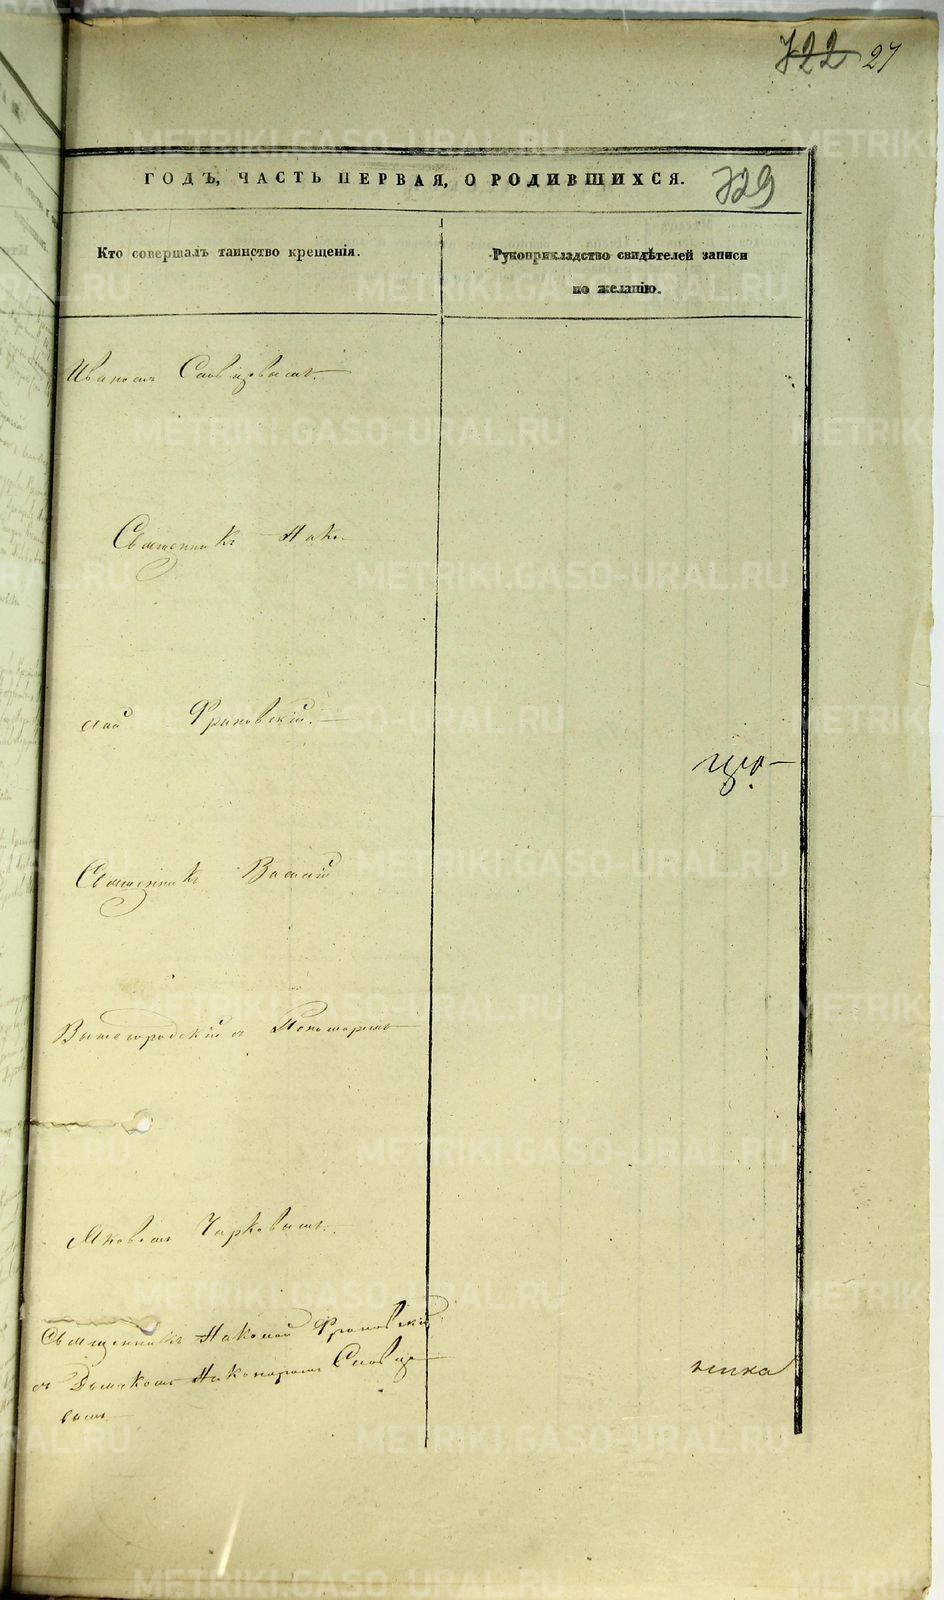 722 27
ГОДЪ, ЧАСТЬ ПЕРВАЯ, О РОДИВШИХСЯ. 729
Кто совершалъ таинство крещенія.
Рукоприкладство свидѣтелей записи
по желанію.
Иваномъ Словцовымъ.
Священникъ Нико-
лай Фроловскій.
Священникъ Василій
Вышегородскій съ Пономаремъ
Яковомъ Чирковымъ.
Священникъ Николай Фроловскій
съ Дьячкомъ Никаноромъ Словцо-
вымъ
METRIKI.GASO-URAL.RU